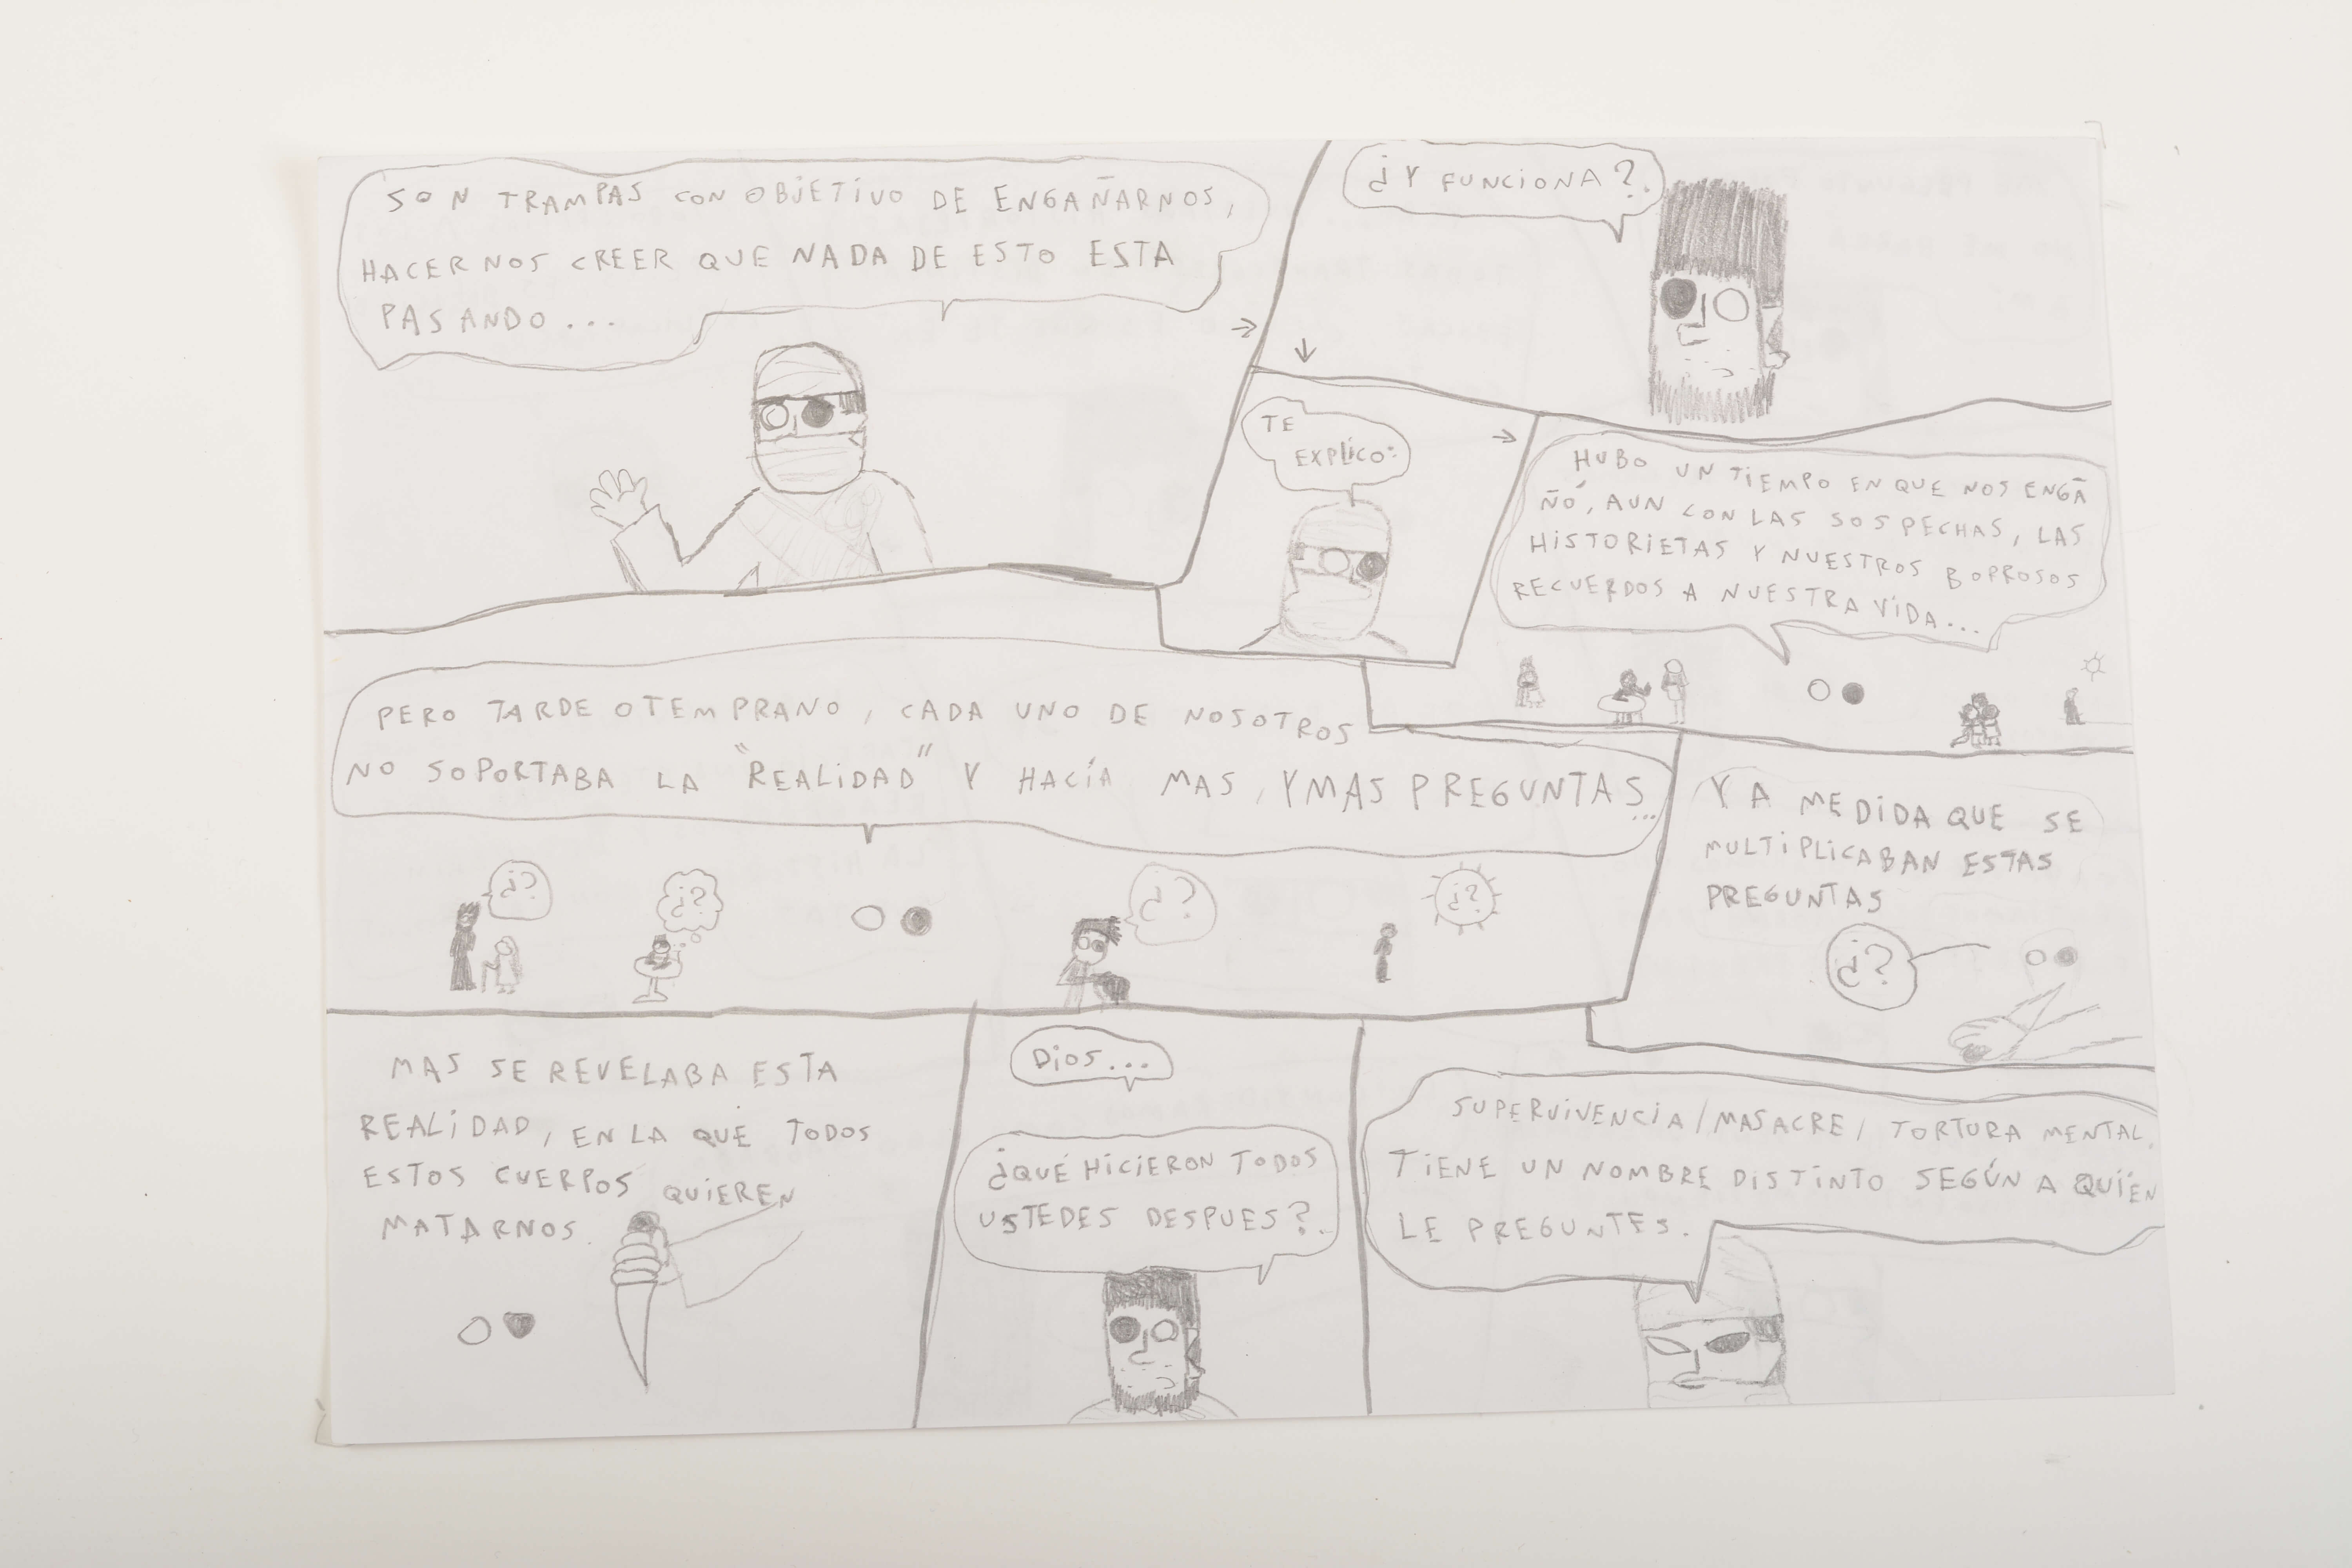 SON TRAMPAS CON OBJETIVO DE ENGAÑARNOS,
HACERNOS CREER QUE NADA DE ESTO ESTA
PASANDO...
¿Y FUNCIONA?
TE
EXPLICO:
HUBO UN TIEMPO EN QUE NOS ENGA
ÑÓ, AUN CON LAS SOSPECHAS, LAS
HISTORIETAS Y NUESTROS BORROSOS
RECUERDOS A NUESTRA VIDA...
PERO TARDE O TEMPRANO, CADA UNO DE NOSOTROS
NO SOPORTABA LA "REALIDAD" Y HACÍA MAS, Y MAS PREGUNTAS...
¿?
¿?
¿?
¿?
Y A MEDIDA QUE SE
MULTIPLICABAN ESTAS
PREGUNTAS
¿?
MAS SE REVELABA ESTA
REALIDAD, EN LA QUE TODOS
ESTOS CUERPOS QUIEREN
MATARNOS.
DIOS...
¿QUÉ HICIERON TODOS
USTEDES DESPUES?
SUPERVIVENCIA/MASACRE/TORTURA MENTAL.
TIENE UN NOMBRE DISTINTO SEGÚN A QUIÉN
LE PREGUNTES.